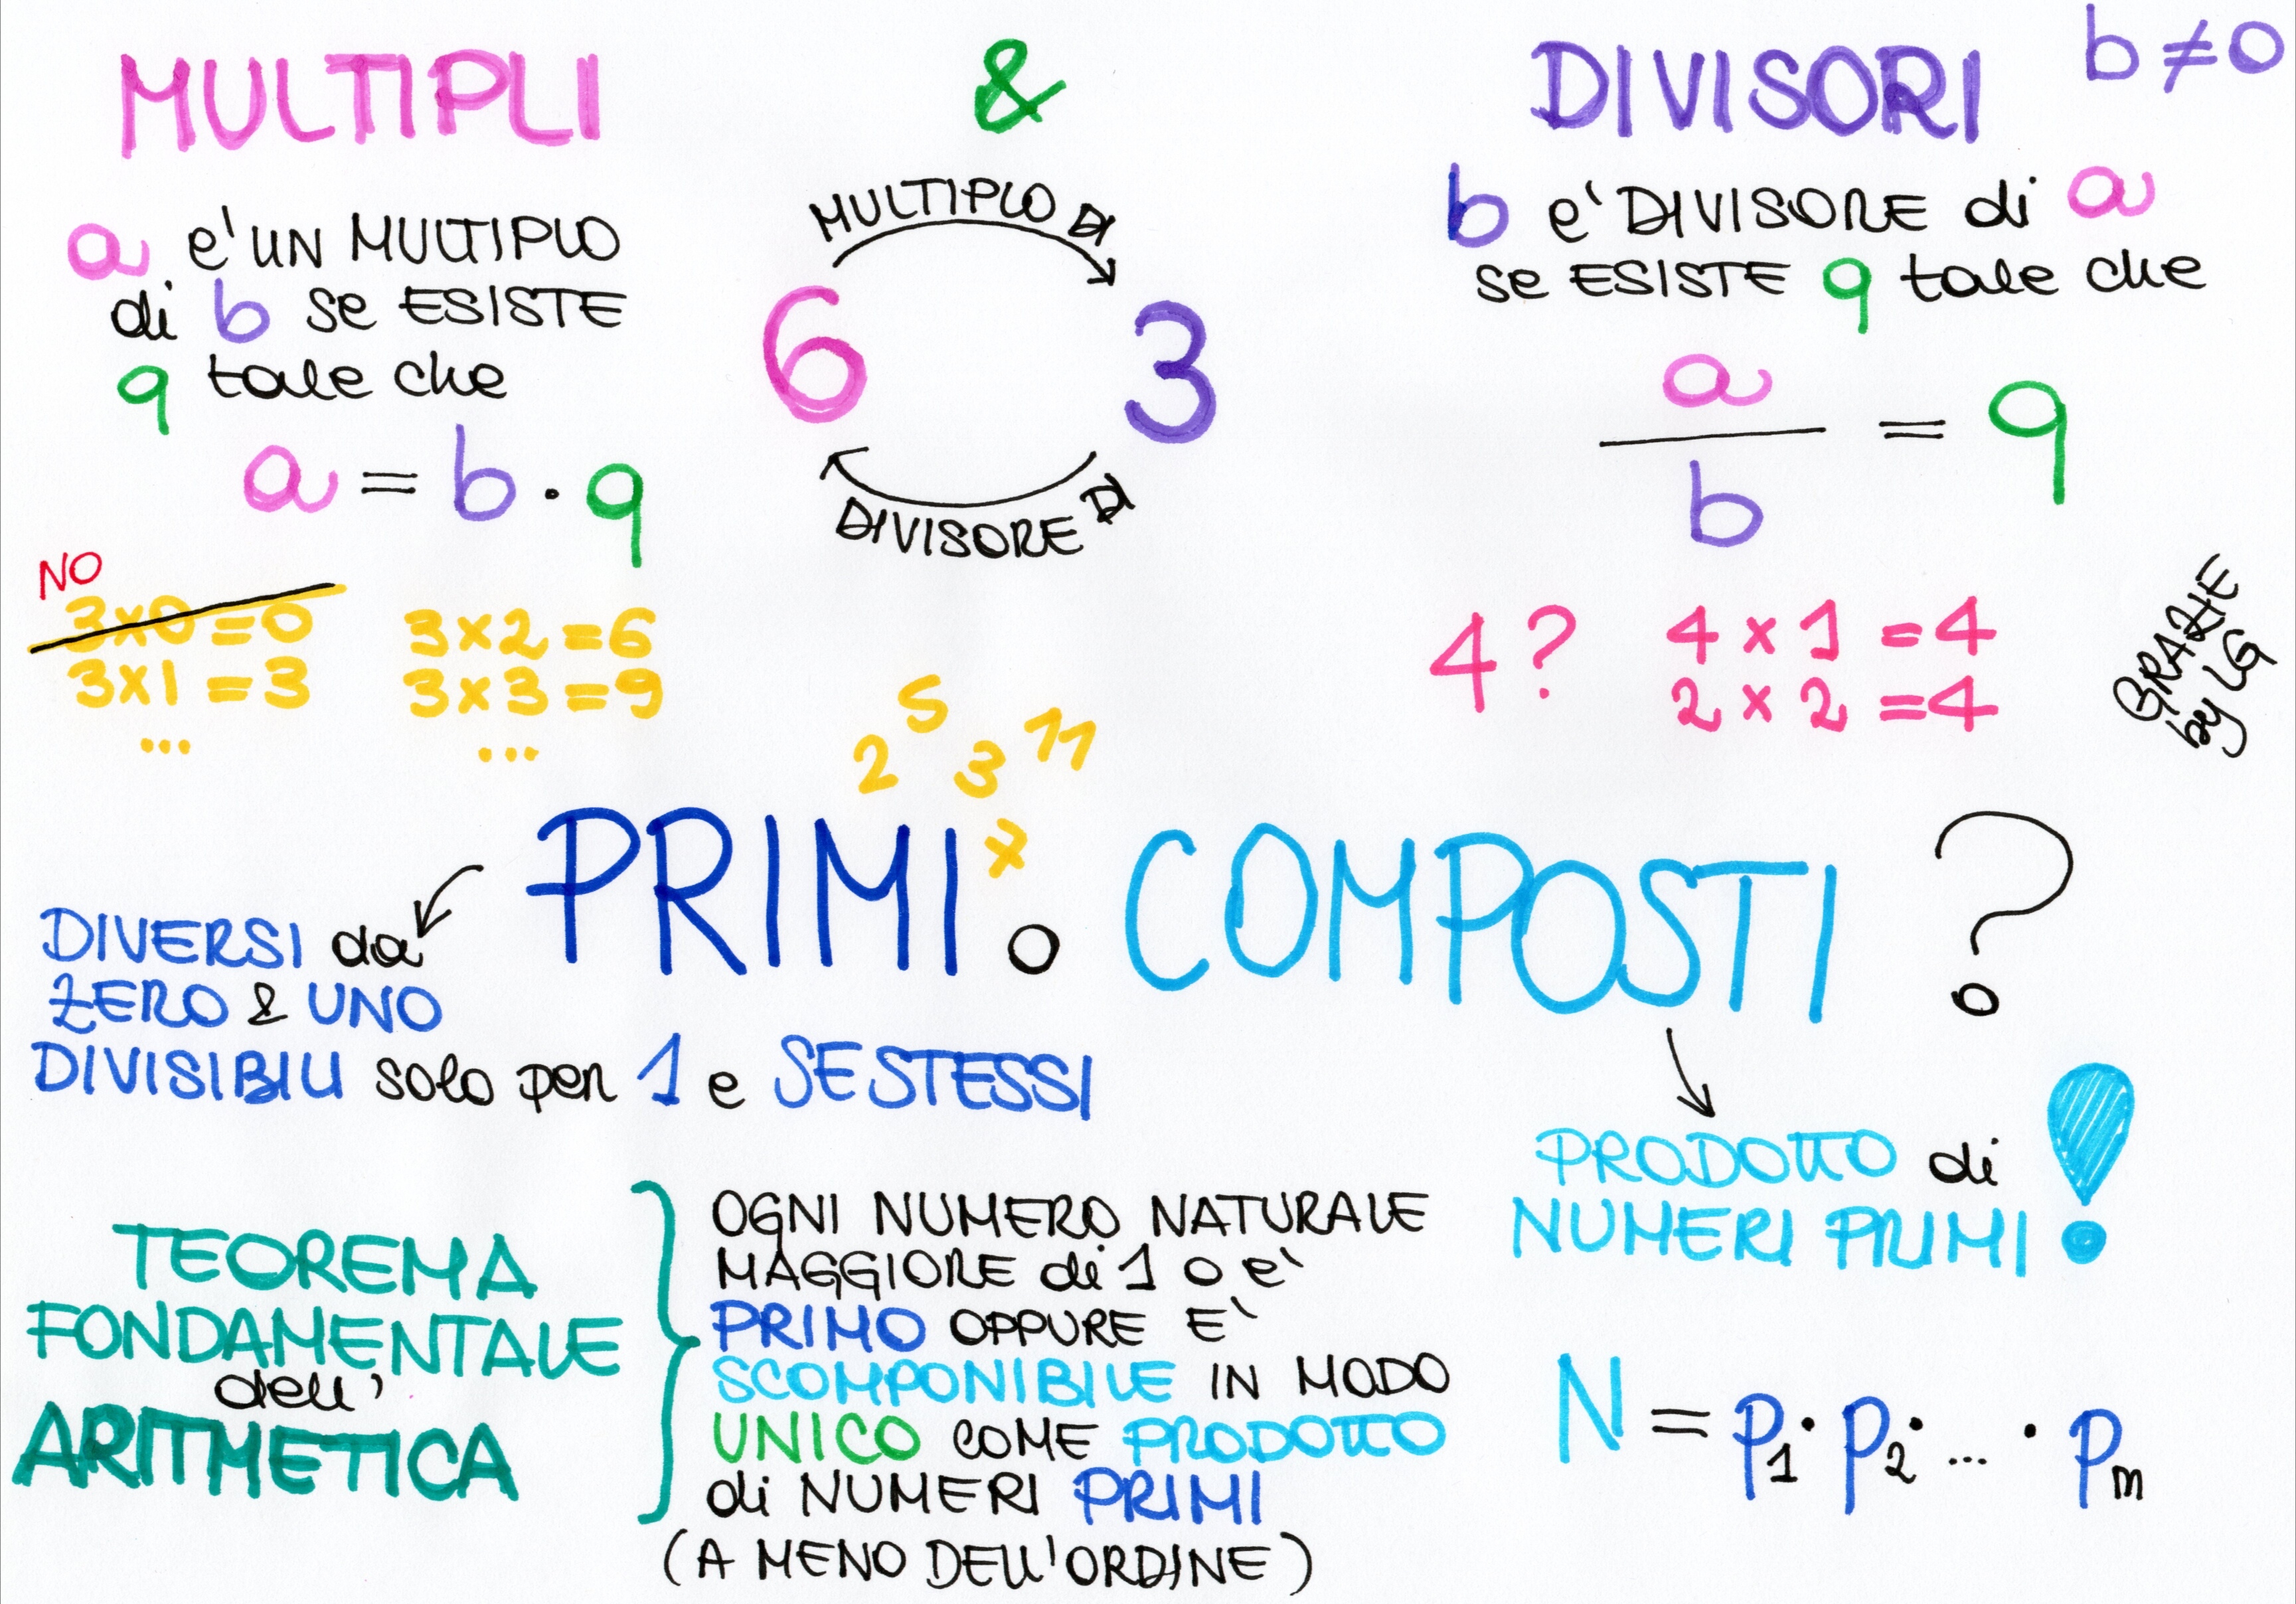 MULTIPLI & DIVISORI b≠0
a e' UN MULTIPLO
di b se ESISTE
q tale che
a = b · q
MULTIPLO DI
6 3
DIVISORE DI
b e' DIVISORE di a
se ESISTE q tale che
a/b = q
NO
3x0=0
3x1=3
...
3x2=6
3x3=9
...
4? 4x1=4
2x2=4
BRAZIE
by LG
2 5 3 11
7
PRIMI o COMPOSTI ?
DIVERSI da
ZERO & UNO
DIVISIBILI solo per 1 e SE STESSI
PRODOTTO di
NUMERI PRIMI !
TEOREMA
FONDAMENTALE
dell'
ARITMETICA
OGNI NUMERO NATURALE
MAGGIORE di 1 o e'
PRIMO OPPURE E'
SCOMPONIBILE IN MODO
UNICO COME PRODOTTO
di NUMERI PRIMI
(A MENO DELL'ORDINE)
N = p1 · p2 · ... · pm